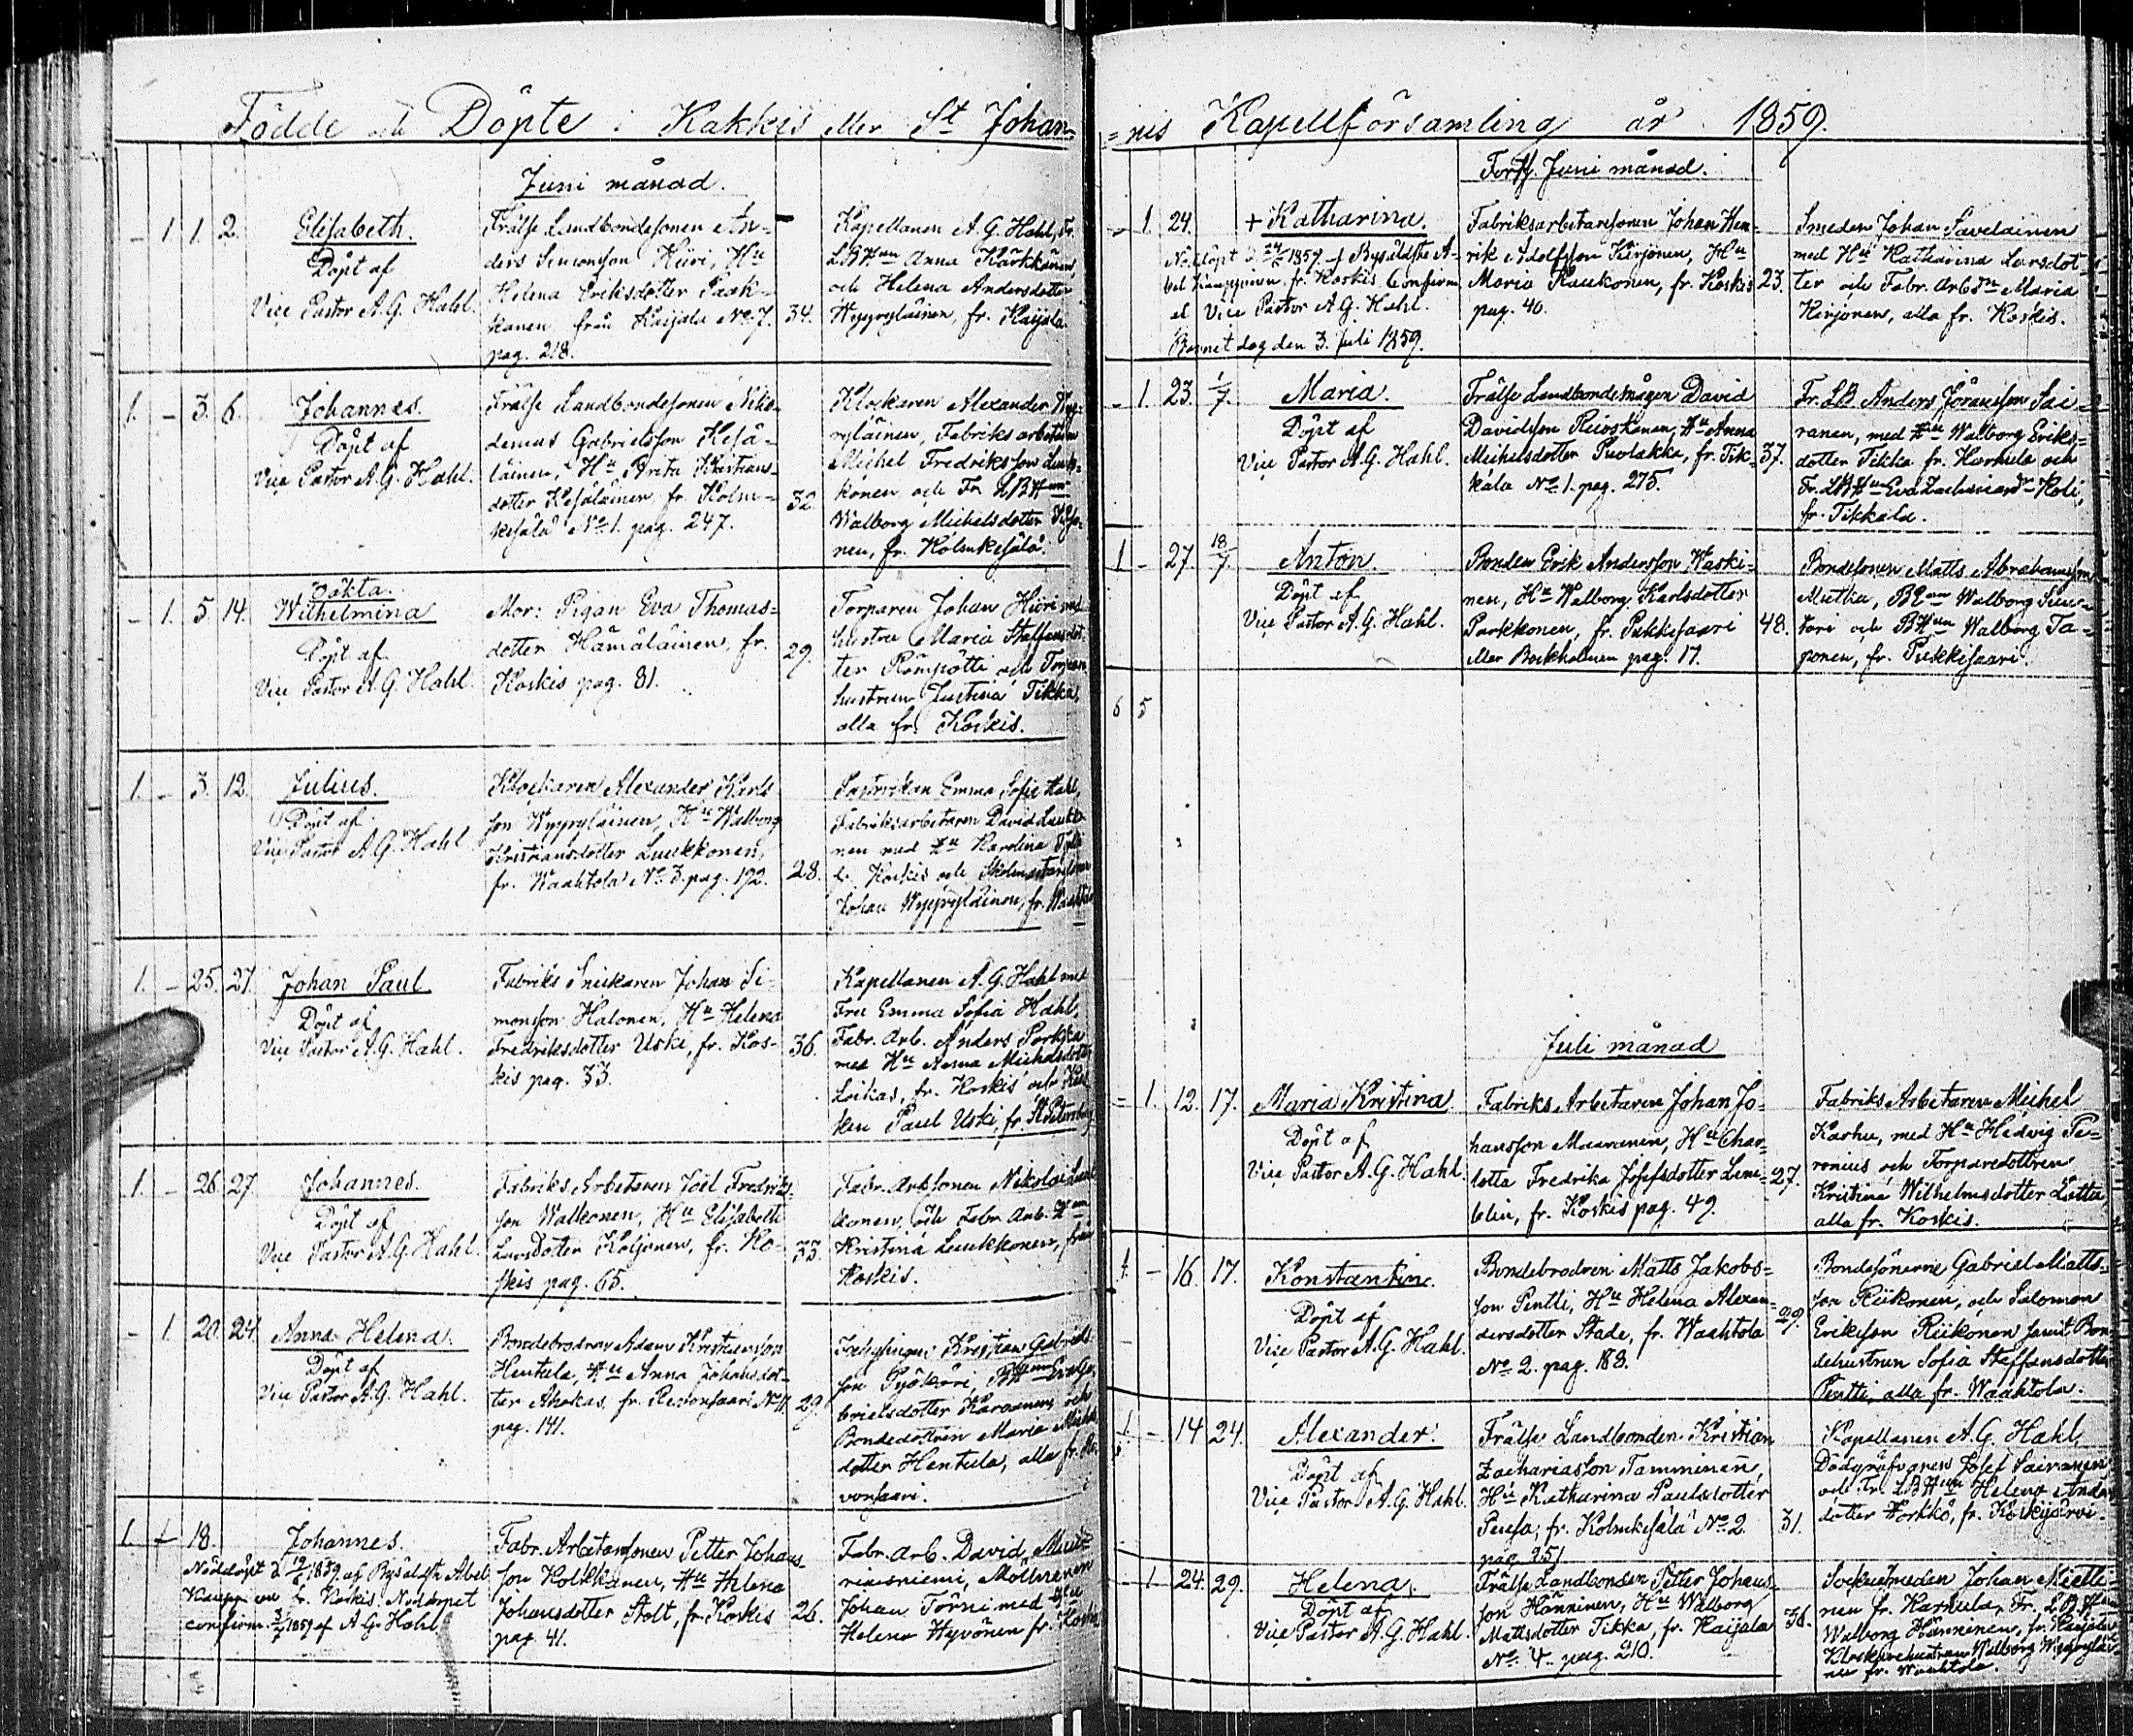 Födde och Döpte i Kakkis eller St Johan=
Juni månad.
- 1. 1. 2. Elisabeth.
Döpt af
Vice Pastor A. G. Hahl.
Frälse Landbondesonen An=
ders Simonsson Hiiri, Hu
Helena Eriksdotter Paak=
kanen från Kaijala No 7.
pag. 218.
34.
Kapellanen A. G. Hahl, Fr.
LBHun Anna Karkkänen
och Helena Andersdotter
Wypryläinen, fr. Kaijala
1. - 3. 6. Johannes.
Döpt af
Vice Pastor A. G. Hahl.
Frälse Landbondesonen Niko=
demus Gabrielsson Kesä=
läinen, Hu Brita Kristians=
dotter Kesäläinen, fr. Kolm=
kesälä No 1. pag. 247.
32.
Klockaren Alexander Wyp=
ryläinen, Fabriks arbetaren
Michel Fredriksson Luuk=
konen och Fr. LBHun
Walborg Michelsdotter
nen, fr. Kolmkesälä.
- 1. 5. 14. Oäkta.
Wilhelmina
Döpt af
Vice Pastor A. G. Hahl.
Mor: Pigan Eva Thomas=
dotter Hämäläinen, fr.
Koskis pag. 81.
29.
Torparen Johan Hiiri med
hustru Maria Staffansdot=
ter Römpötti och Torpare
hustrun Justina Tikka,
alla fr. Koskis.
1. - 3. 12. Julius.
Döpt af
Vice Pastor A. G. Hahl
Klockaren Alexander Karls
son Wypryläinen, Hu Walborg
Kristiansdotter Luukkonen,
fr. Waahtola No 3. pag. 192.
28.
Pastorskan Emma Sofie Hahl,
Fabriksarbetaren David Luukko
nen med Hu Karolina
fr. Koskis och
Johan Wypryläinen, fr. Waahtola
1. - 25. 27. Johan Paul
Döpt af
Vice Pastor A. G. Hahl.
Fabriks Snickaren Johan Si=
monsson Halonen, Hu Helena
Fredriksdotter Uski, fr. Kos=
kis pag. 33.
36.
Kapellanen A. G. Hahl med
Fru Emma Sofia Hahl,
Fabr. Arb. Anders Porkka
med Hu Anna Michelsdotter
Loikas, fr. Koskis och
ken Paul Uski, fr. St Petersburg
1. - 26. 27. Johannes.
Döpt af
Vice Pastor A. G. Hahl.
Fabriks Arbetaren Joel Fredriks=
son Walkonen, Hu Elisabeth
Larsdotter Koljonen, fr. Ko=
skis pag. 65.
33.
Fabr. Arbsonen Nikolai Luuk
konen, och Fabr. Arb. Hun
Kristina Luukkonen, från
Koskis.
- 1. 20. 24. Anna Helena.
Döpt af
Vice Pastor A. G. Hahl.
Bondebrodren Adam Kristiansson
Hentula, Hu Anna Johansdot=
ter Ahokas, fr. Revonsaari No 11.
pag. 141.
29.
Kristian Gabriels
son Pyökäri, BHun Eva Ga
brielsdotter Karvanen, och
Bondedottren Maria Michels
dotter Hentula, alla fr. Re
vonsaari.
1. + 18. Johannes.
Nöddöpt d 19/6 1859 af Bysäldste Abel
Kauppinen fr. Koskis. Nöddopet
confirm. 3/7 1859 af A. G. Hahl
Fabr. Arbetaresonen Petter Johans
son Kolkkanen, Hu Helena
Johansdotter Stolt, fr. Koskis
pag. 41.
26.
Fabr. Arb. David
Johan Törni med Hu
Helena Hyvönen fr. Koskis
=nis Kapellförsamling år 1859.
Forts. Juni månad.
- 1. 24. + Katharina.
Nöddöpt d. 24/6 1859 af Bysäldste A=
bel Kauppinen fr. Koskis. Confirm.
af Vice Pastor A. G. Hahl.
Barnet dog den 3. Juli 1859.
Fabriksarbetaresonen Johan Hen=
rik Adolfsson Kirjonen, Hu
Maria Kaukonen, fr. Koskis
pag. 40.
23.
Smeden Johan Savelainen
med Hu Katharina Larsdot=
ter och Fabr. Arbdn Maria
Kirjonen, alla fr. Koskis.
- 1. 23. 1/7. Maria.
Döpt af
Vice Pastor A. G. Hahl.
Frälse Landbondemågen David
Davidsson Reioskanen, Hu Anna
Michelsdotter Puolakka, fr. Tik=
kala No 1. pag. 275.
37.
Fr. LB. Anders Göransson Sai=
ranen, med Hu Walborg Eriks=
dotter Tikka fr. Karhula och
Fr. LBHun Eva Zachariasdr Koli,
fr. Tikkala.
1 - 27. 18/7 Anton.
Döpt af
Vice Pastor A. G. Hahl.
Bonden Erik Andersson Waski=
nen, Hu Walborg Karlsdotter
Parkkonen, fr. Pukkisaari
eller Bockholmen pag. 17.
48.
Bondesonen Matts Abrahamsson
Mutka, BHun Walborg Sun=
tari och BHun Walborg Ta=
ponen, fr. Pukkisaari.
6 5
Juli månad
- 1. 12. 17. Maria Kristina
Döpt af
Vice Pastor A. G. Hahl.
Fabriks Arbetaren Johan Jo=
hansson Maaranen, Hu Char=
lotta Fredrika Josefsdotter Lem=
blin, fr. Koskis pag. 49.
27.
Fabriks Arbetaren Michel
Karhu, med Hu Hedvig Pe=
ronius och Torparedottren
Kristina Wilhelmsdotter Lattu
alla fr. Koskis.
1. - 16. 17. Konstantin.
Döpt af
Vice Pastor A. G. Hahl.
Bondebrodren Matts Jakobs=
son Pentti, Hu Helena Alexan=
dersdotter Stade, fr. Waahtola
No 2. pag. 188.
29.
Bondesönerne Gabriel Matts=
son Riikonen, och Salomon
Eriksson Riikonen samt Bon
dehustrun Sofia Staffansdotter
Pentti, alla fr. Waahtola.
1 - 14 24. Alexander.
Döpt af
Vice Pastor A. G. Hahl.
Frälse Landbonden Kristian
Zachariasson Tamminen,
Hu Katharina Paulsdotter
Pusa, fr. Kolmkesälä No 2
pag. 251
31.
Kapellanen A. G. Hahl,
Dödgräfvaren Josef Sairanen
och Fr. LBHun Helena Anders
dotter Forkko, fr. Kaskijärvi.
- 1 24. 29. Helena.
Döpt af
Vice Pastor A. G. Hahl.
Frälse Landbonden Petter Johans
son Hänninen, Hu Walborg
Mattsdotter Tikka, fr. Kaijala
No. 4. pag. 210.
36.
Sockensmeden Johan Mietti
nen fr. Karhula, Fr. LBHun
Walborg Hänninen, fr. Kaijala
Klockarehustrun Walborg Wypryläi
nen fr. Waahtola.